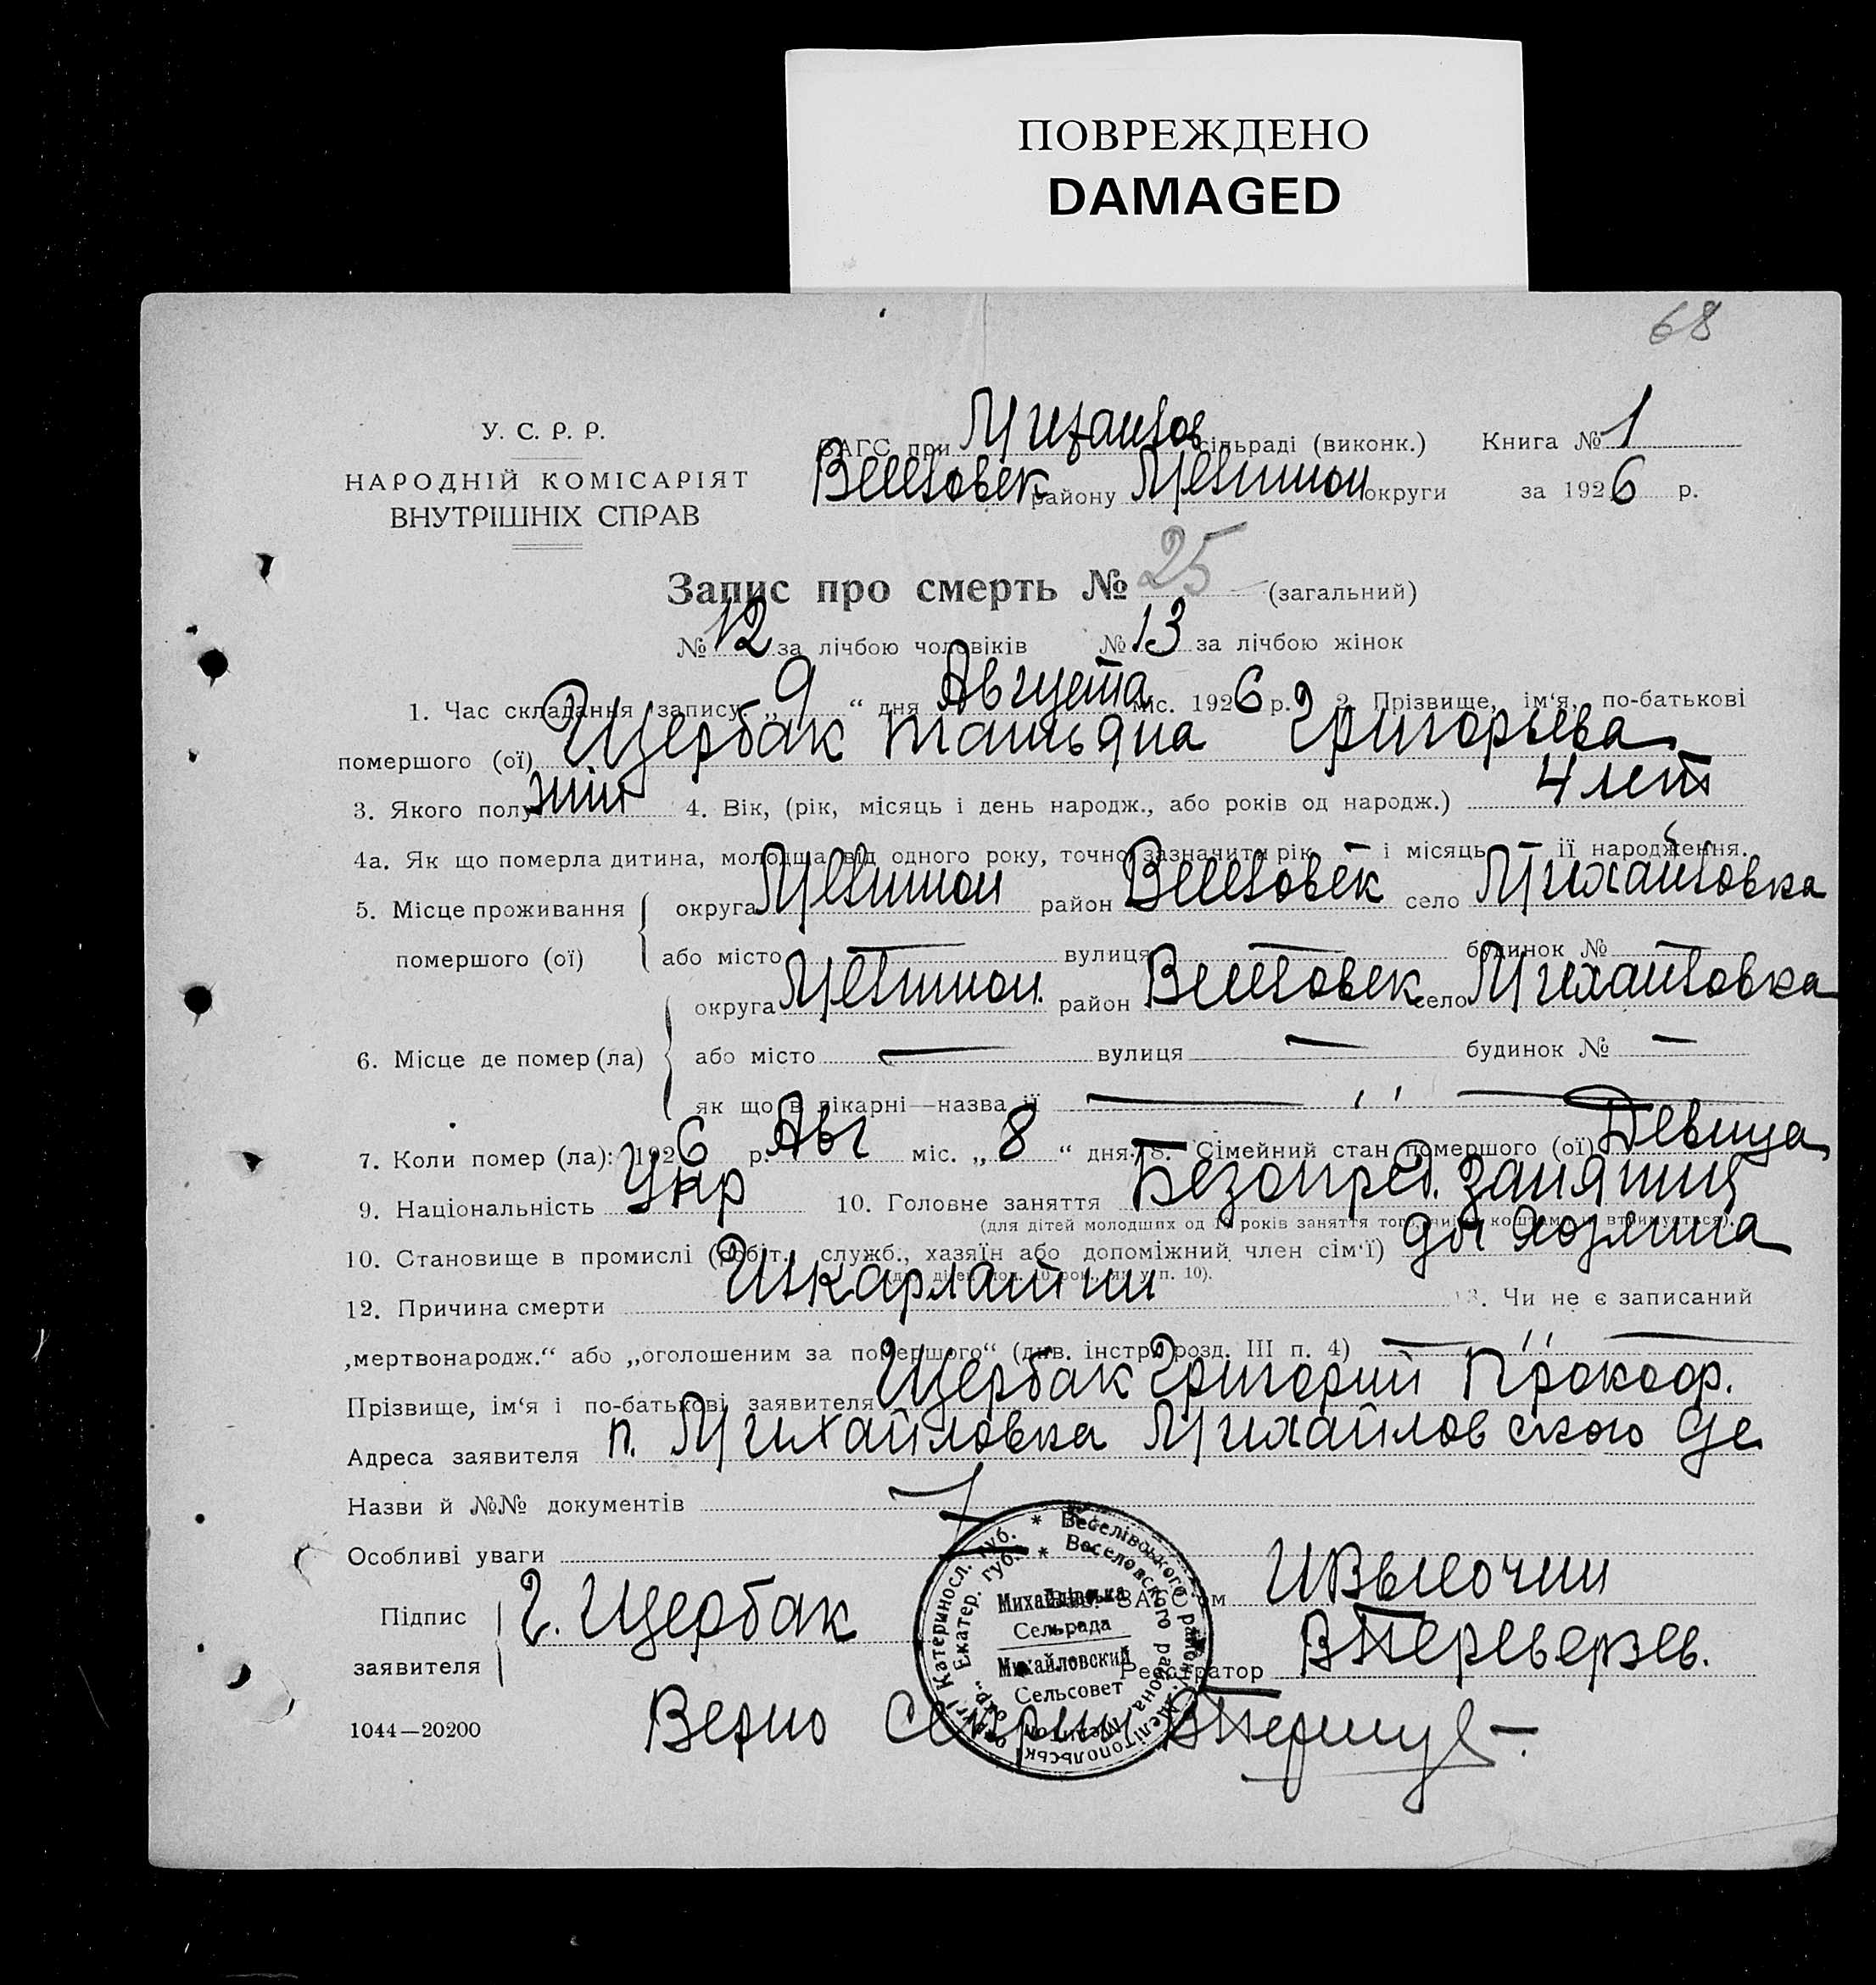 ПОВРЕЖДЕНО
DAMAGED
68
У. С. Р. Р.
НАРОДНІЙ КОМІСАРІЯТ
ВНУТРІШНІХ СПРАВ
ЗАГС при Михайлов сільраді (виконк.) Книга № 1
Веселовск району Мелитоп округи за 1926 р.
Запис про смерть № 25 (загальний)
№ 12 за лічбою чоловіків № 13 за лічбою жінок
1. Час складання запису „ 9 “ дня Августа міс. 1926 р. 2. Прізвище, ім‘я, по-батькові
помершого (ої) Щербак Татьяна Григорьева
3. Якого полу жін 4. Вік, (рік, місяць і день народж., або років од народж.) 4 лет
4а. Як що померла дитина, молодша від одного року, точно зазначити рік — і місяць — її народження.
5. Місце проживання помершого (ої) округа Мелитоп район Веселовск село Михайловка
або місто — вулиця — будинок № —
6. Місце де помер (ла) округа Мелитоп. район Веселовск село Михайловка
або місто — вулиця — будинок № —
як що в лікарні—назва її — ,, —
7. Коли помер (ла): 1926 р. Авг міс. „ 8 “ дня. 8. Сімейний стан помершого (ої) Девица
9. Національність Укр 10. Головне заняття Безопред. занятий
(для дітей молодших од 10 років заняття того, чиїм коштом їх втримується).
10. Становище в промислі (робіт., служб., хазяїн або допоміжний член сім‘ї) хозяина
(для дітей мол. 10 рок., як у п. 10).
12. Причина смерти Шкарлатин 13. Чи не є записаний
„мертвонародж.“ або „оголошеним за помершого“ (див. інстр. розд. III п. 4) — ,, —
Прізвище, ім‘я і по-батькові заявителя Щербак Григорий Прокоф.
Адреса заявителя п. Михайловка Михайловского
Назви й №№ документів
Особливі уваги
Підпис заявителя Г. Щербак
Зав. ЗАГС‘ом
Реєстратор ВПереверзев.
Михайлівська
Сельрада
Михайловский
Сельсовет
1044—20200
Верно